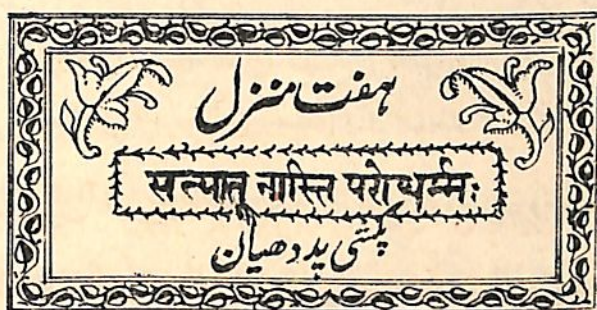 ہفت منزل
सत्यात् नास्ति परो धर्म्मः
پکشی پد دھیان